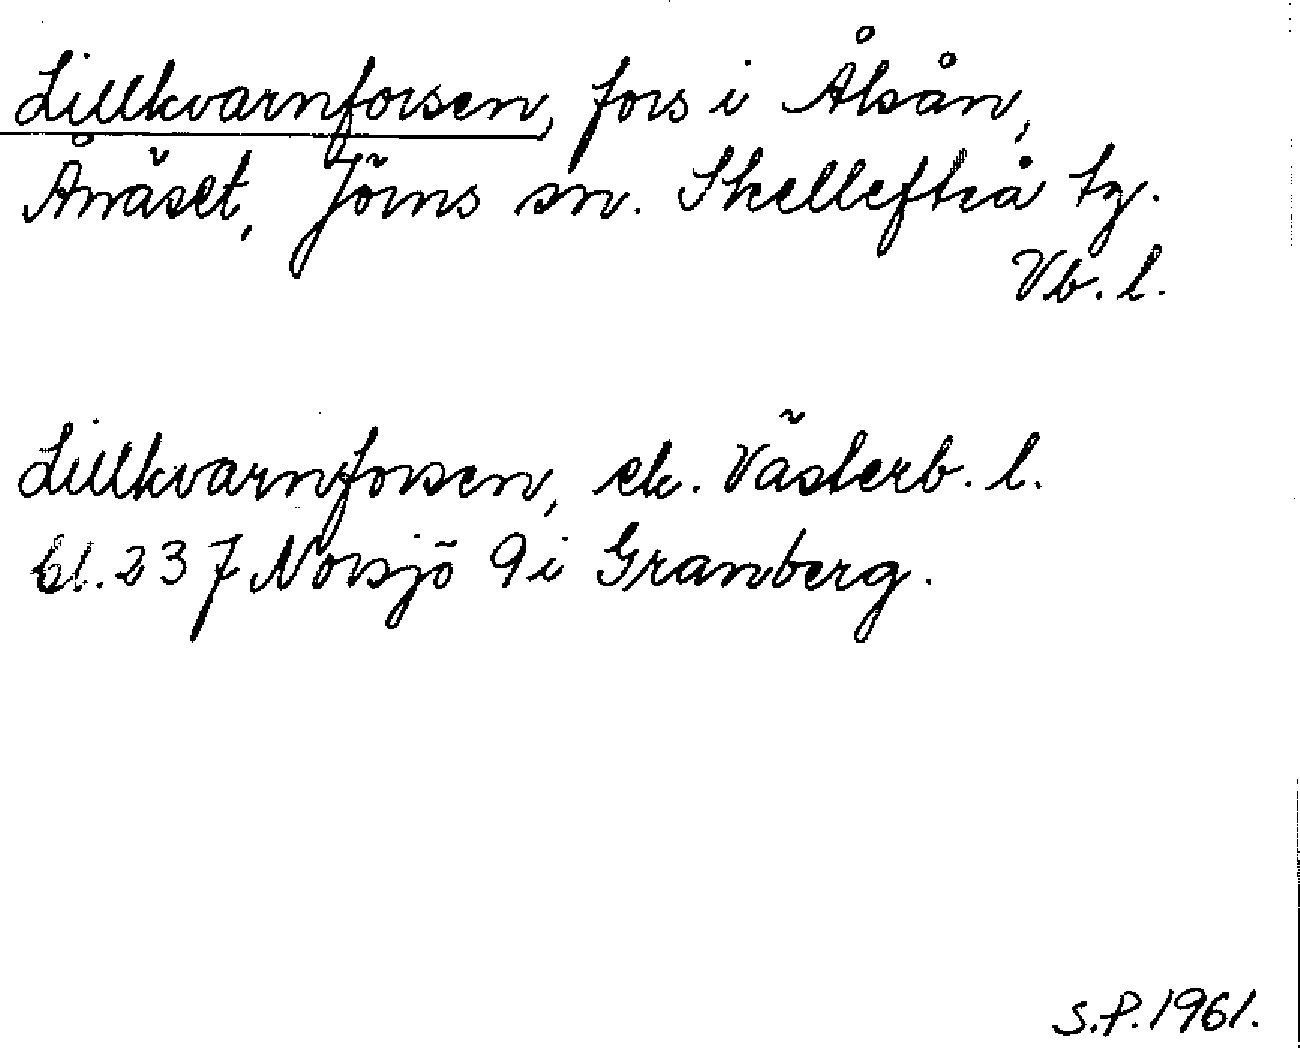 Lillkvarnforsen, fors i Ålsån,
Ånäset, Jörns sn. Skellefteå tg.
Vb. l.
Lillkvarnforsen, ek. Västerb. l.
bl. 237 Norsjö 9i Granberg.
S.P. 1961.